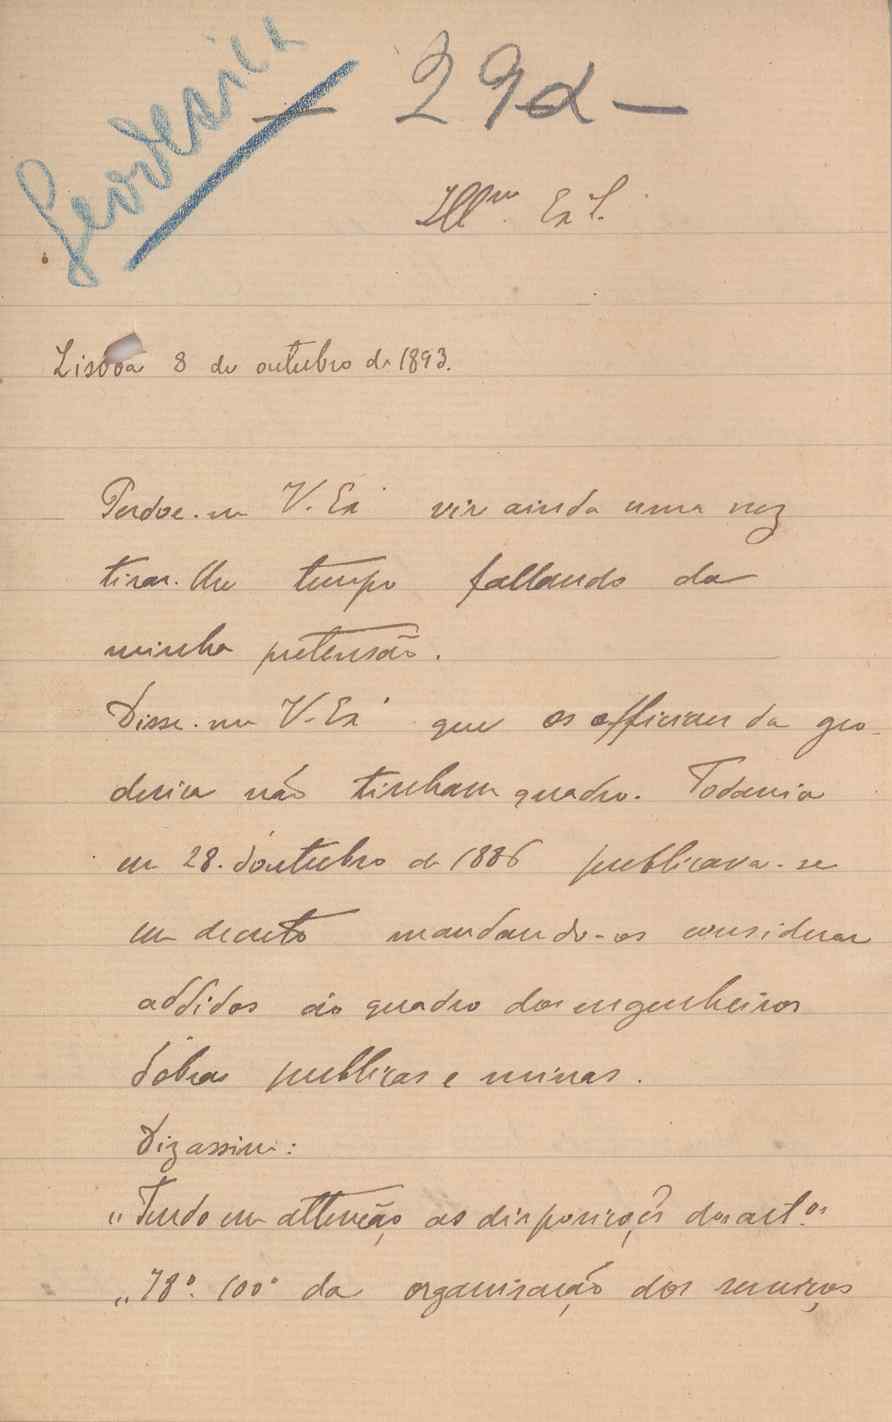 Geodesica
— 29d —
Illmo. Ex S.
Lisboa 8 de outubro de 1893.
Perdoe-me V. Exª vir ainda uma vez
tirar-lhe tempo fallando da
minha pretensão.
Disse-me V. Exª que os officiaes da geo-
desica não tinham quadro. Todavia
em 28 d'outubro de 1886 publicava-se
um decreto mandando-os considerar
addidos ao quadro dos engenheiros
d'obras publicas e minas.
Diz assim:
"Tendo em attenção as disposições dos art.os
"78º. 100º da organisação dos serviços